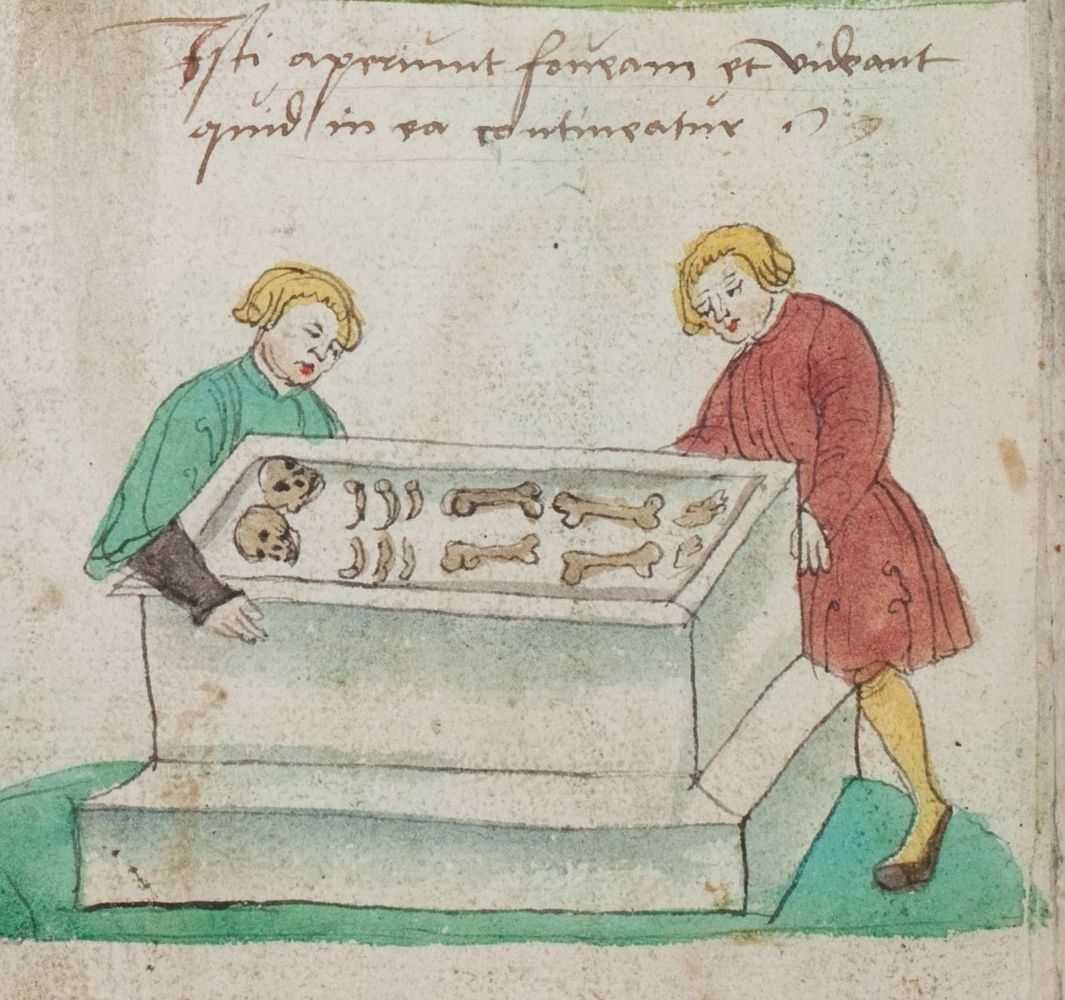 Isti aperiunt foueam et videant
quid in ea contineatur